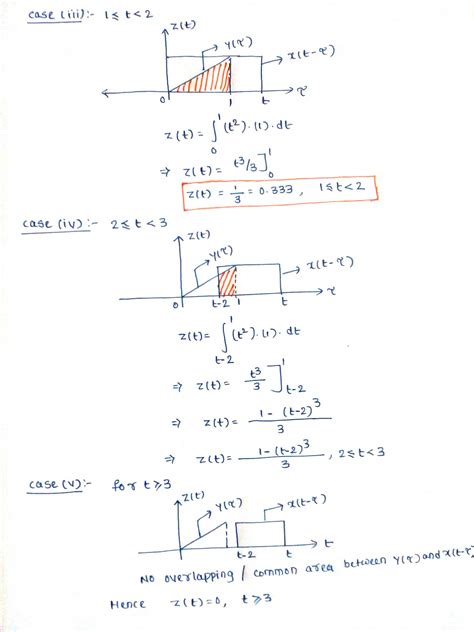 case (iii):- 1 ≤ t < 2
z(t)
y(τ)
x(t-τ)
0 1 t τ
z(t) = ∫₀¹ (t²).(1).dt
⇒ z(t) = t³/3]₀¹
z(t) = 1/3 = 0.333, 1≤t<2
case (iv):- 2 ≤ t < 3
z(t)
y(τ)
x(t-τ)
0 t-2 1 t τ
z(t) = ∫ₜ₋₂¹ (t²).(1).dt
⇒ z(t) = t³/3]ₜ₋₂¹
⇒ z(t) = 1-(t-2)³/3
⇒ z(t) = 1-(t-2)³/3, 2≤t<3
case (v):- for t≥3
z(t)
y(τ)
x(t-τ)
t-2 t t
No overlapping / common area between y(τ) and x(t-τ)
Hence z(t)=0, t≥3